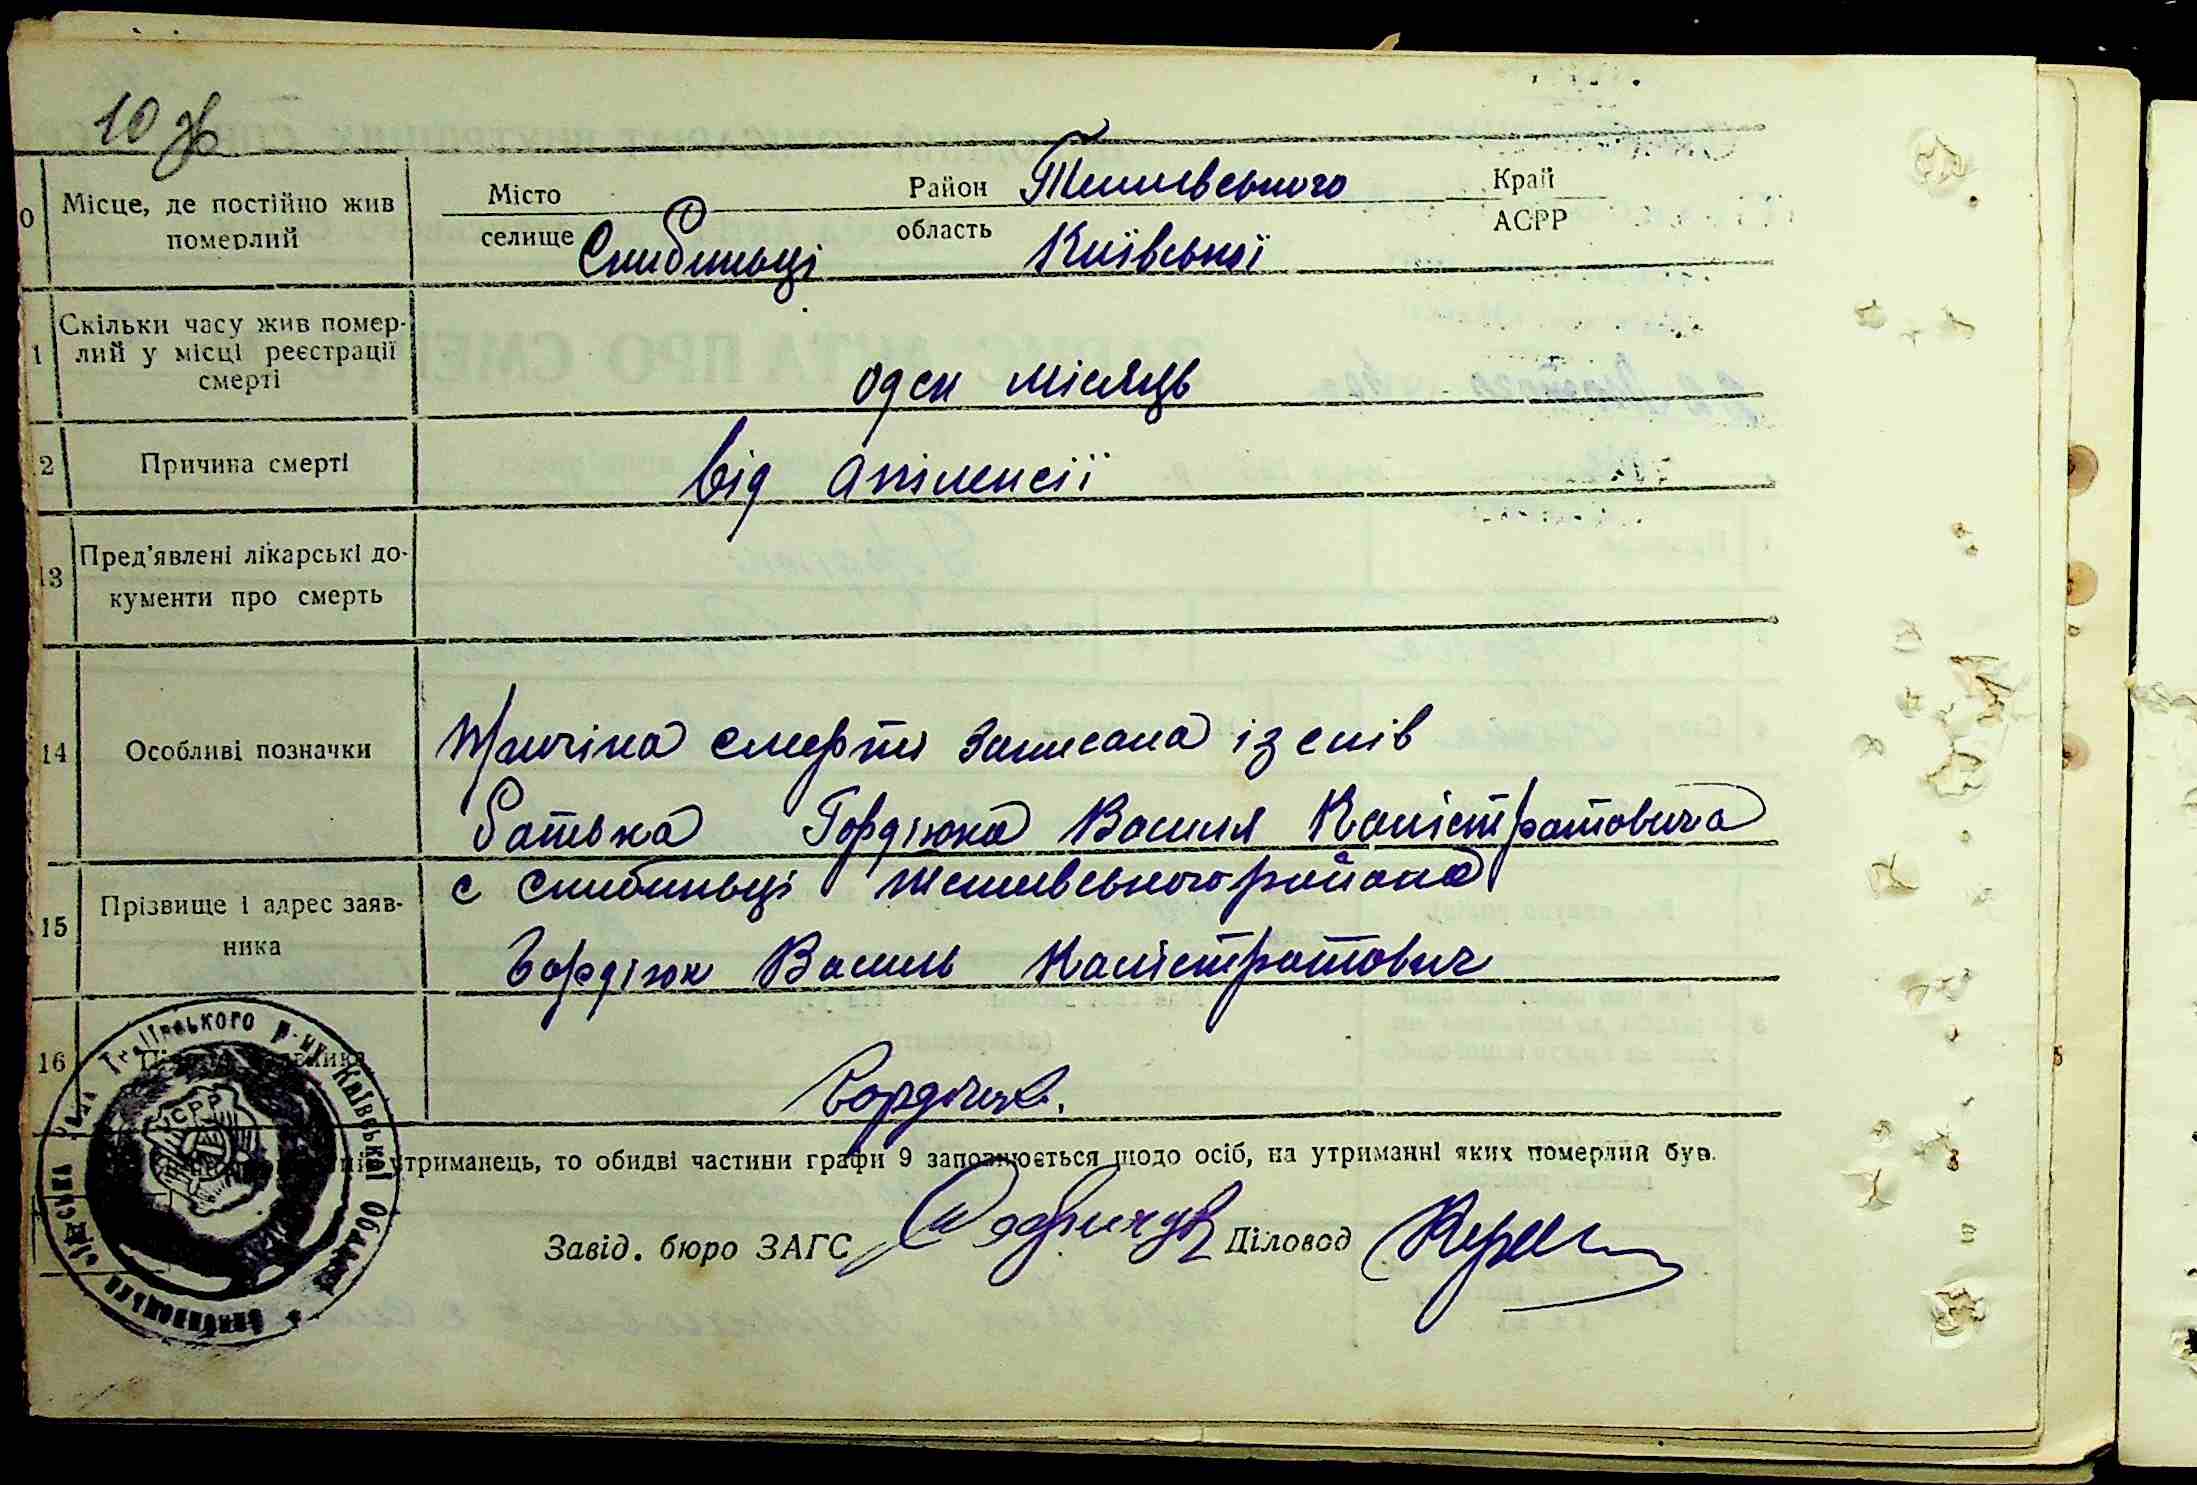 10 зв
0 Місце, де постійно жив померлий
Місто Район Тетиївського Край
селище Снибиньці область Київської АСРР
1 Скільки часу жив помер-
лий у місці реєстрації
смерті
оден місяць
2 Причина смерті від апілепсії
13 Пред'явлені лікарські до-
кументи про смерть
14 Особливі позначки
Причіна смерти записана із слів
батька Гордіюка Василя Калістратовича
с
15 Прізвище і адрес заяв-
ника
Гордіюк Василь Калістратович
16
Гордіюк.
утриманець, то обидві частини графи 9 заповнюється щодо осіб, на утриманні яких померлий був.
Завід. бюро ЗАГС Діловод
р-ну Київської Області
УСРР